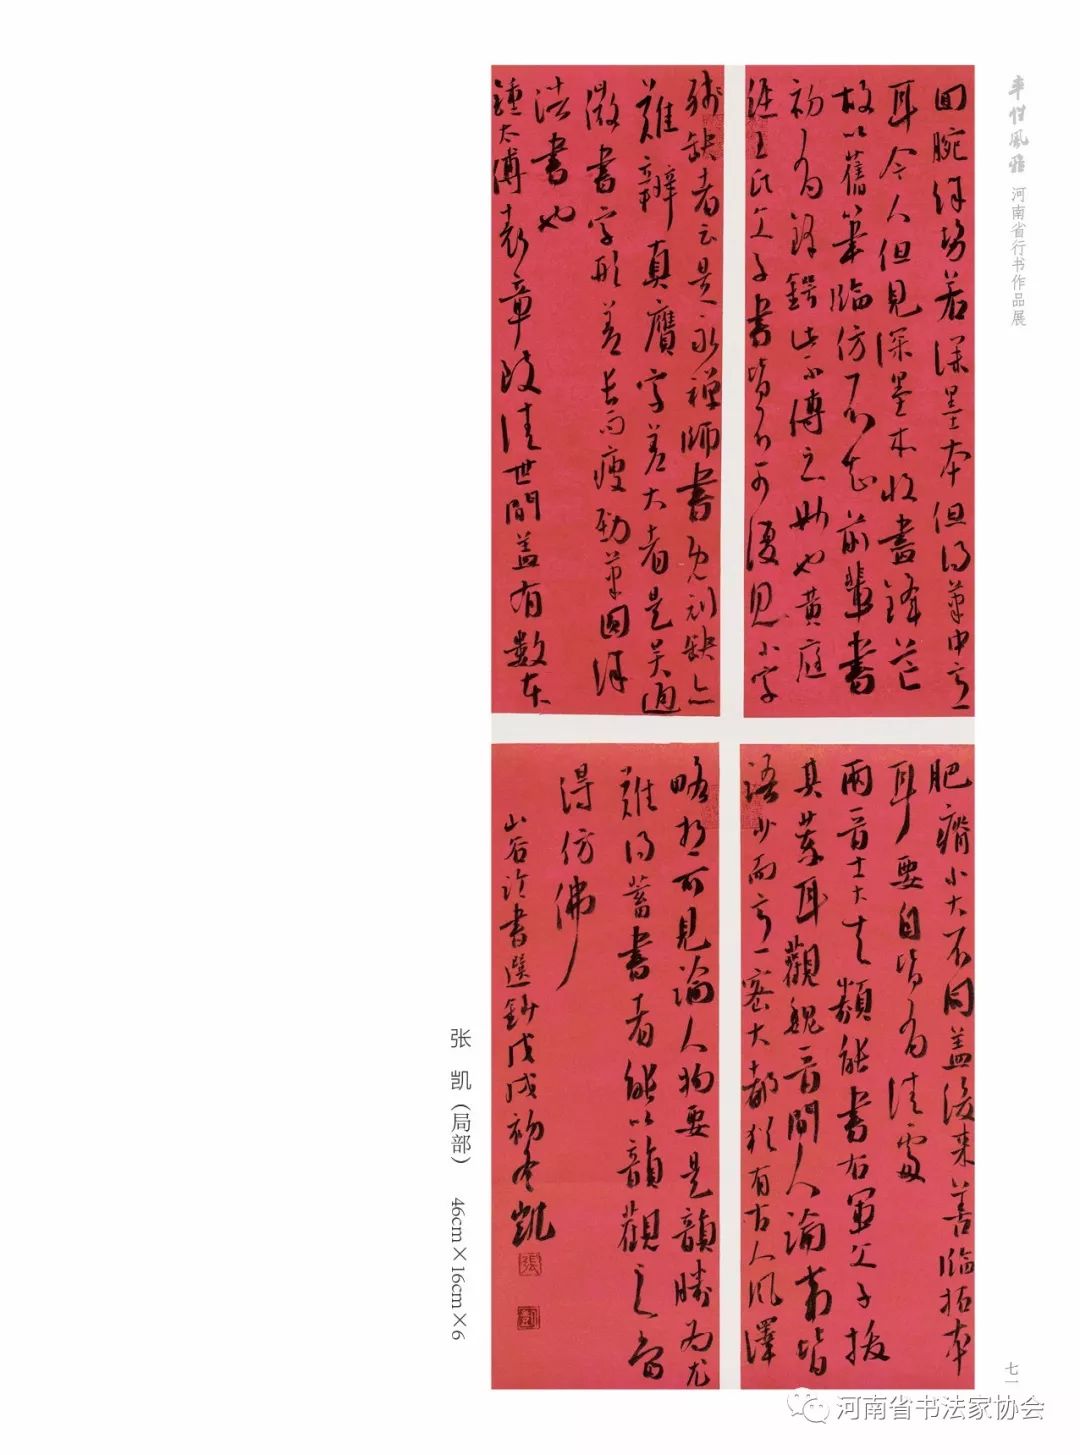 率性風雅 河南省行书作品展
回腕得勢若深墨本但得筆中意
耳今人但見深墨本收書鋒芒
故以舊筆臨仿不知前輩書
初有鋒鍔此不傳之妙也黃庭
經王氏父子書皆不可復見小字
殘缺者云是永禪師書既刓缺亦
難辯真贗字差大者是吳通
微書字形差長而瘦勁筆圓得
法書也
鍾太傅表章致佳世間蓋有數本
肥瘠小大不同蓋後來善臨拓本
耳要自皆有佳處
兩晉士大夫類能書右軍父子拔
其萃耳觀魏晉間人論事皆
語少而意密大都猶有古人風澤
略想可見論人物要是韻勝為尤
難得蓄書者能以韻觀之當
得仿佛
山谷論書選鈔戊戌初冬凱
張
张 凯（局部） 46cm×16cm×6
七一
河南省书法家协会